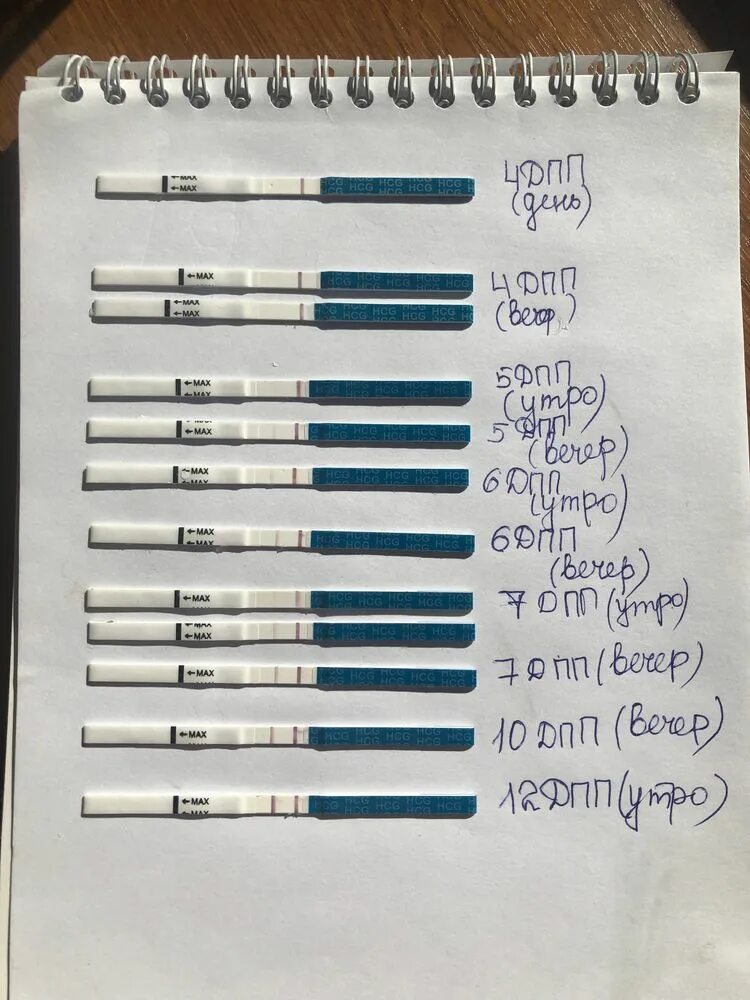 ←MAX
←MAX
HCG HCG HCG HCG
4ДПП
(день)
←MAX
4ДПП
(вечер)
←MAX
HCG HCG HCG HCG
←MAX
←MAX
5ДПП
(утро)
←MAX
HCG HCG HCG HCG
5ДПП
(вечер)
←MAX
←MAX
6ДПП
(утро)
←MAX
←MAX
HCG HCG HCG HCG
6ДПП
(вечер)
←MAX
HCG HCG HCG HCG
7ДПП (утро)
←MAX
←MAX
HCG HCG HCG HCG
←MAX
7ДПП (вечер)
←MAX
HCG HCG HCG HCG
10ДПП (вечер)
←MAX
←MAX
HCG HCG HCG HCG
12ДПП (утро)